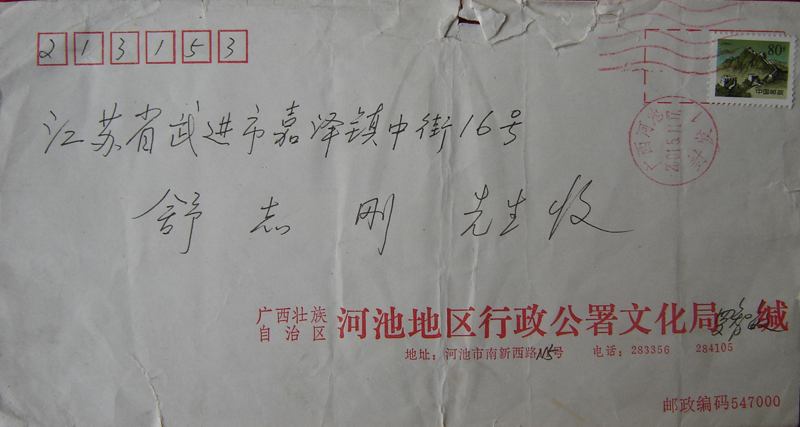 213153
80分
中国邮政
江苏省武进市嘉泽镇中街16号
舒志刚 先生 收
广西壮族自治区 河池地区行政公署文化局 缄
地址：河池市南新西路115号 电话：283356 284105
邮政编码547000